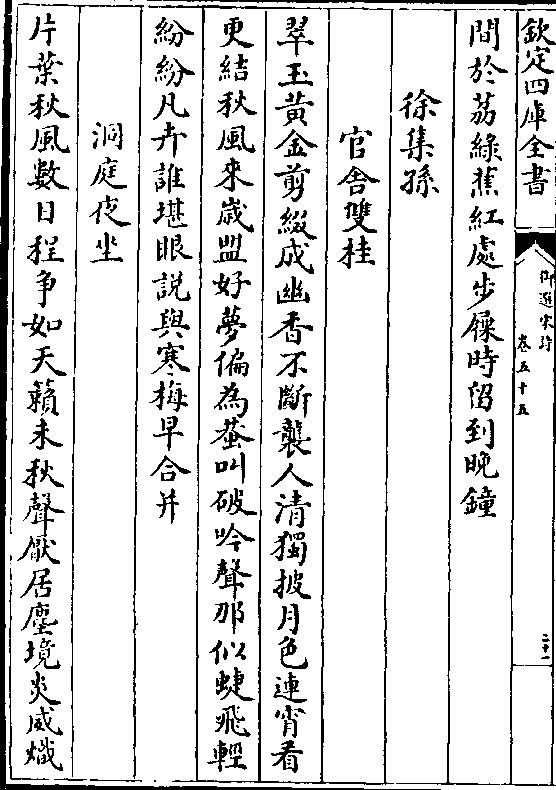 欽定四庫全書
御選宋詩
卷五十五
二十一
間於荔綠蕉紅處步屧時留到晚鐘
徐集孫
官舍雙桂
翠玉黃金剪綴成幽香不斷襲人清獨披月色連宵看
更結秋風來歲盟好夢偏為蛩叫破吟聲那似蜨飛輕
紛紛凡卉誰堪眼說與寒梅早合并
洞庭夜坐
片葉秋風數日程争如天籟未秋聲厭居塵境炎威熾